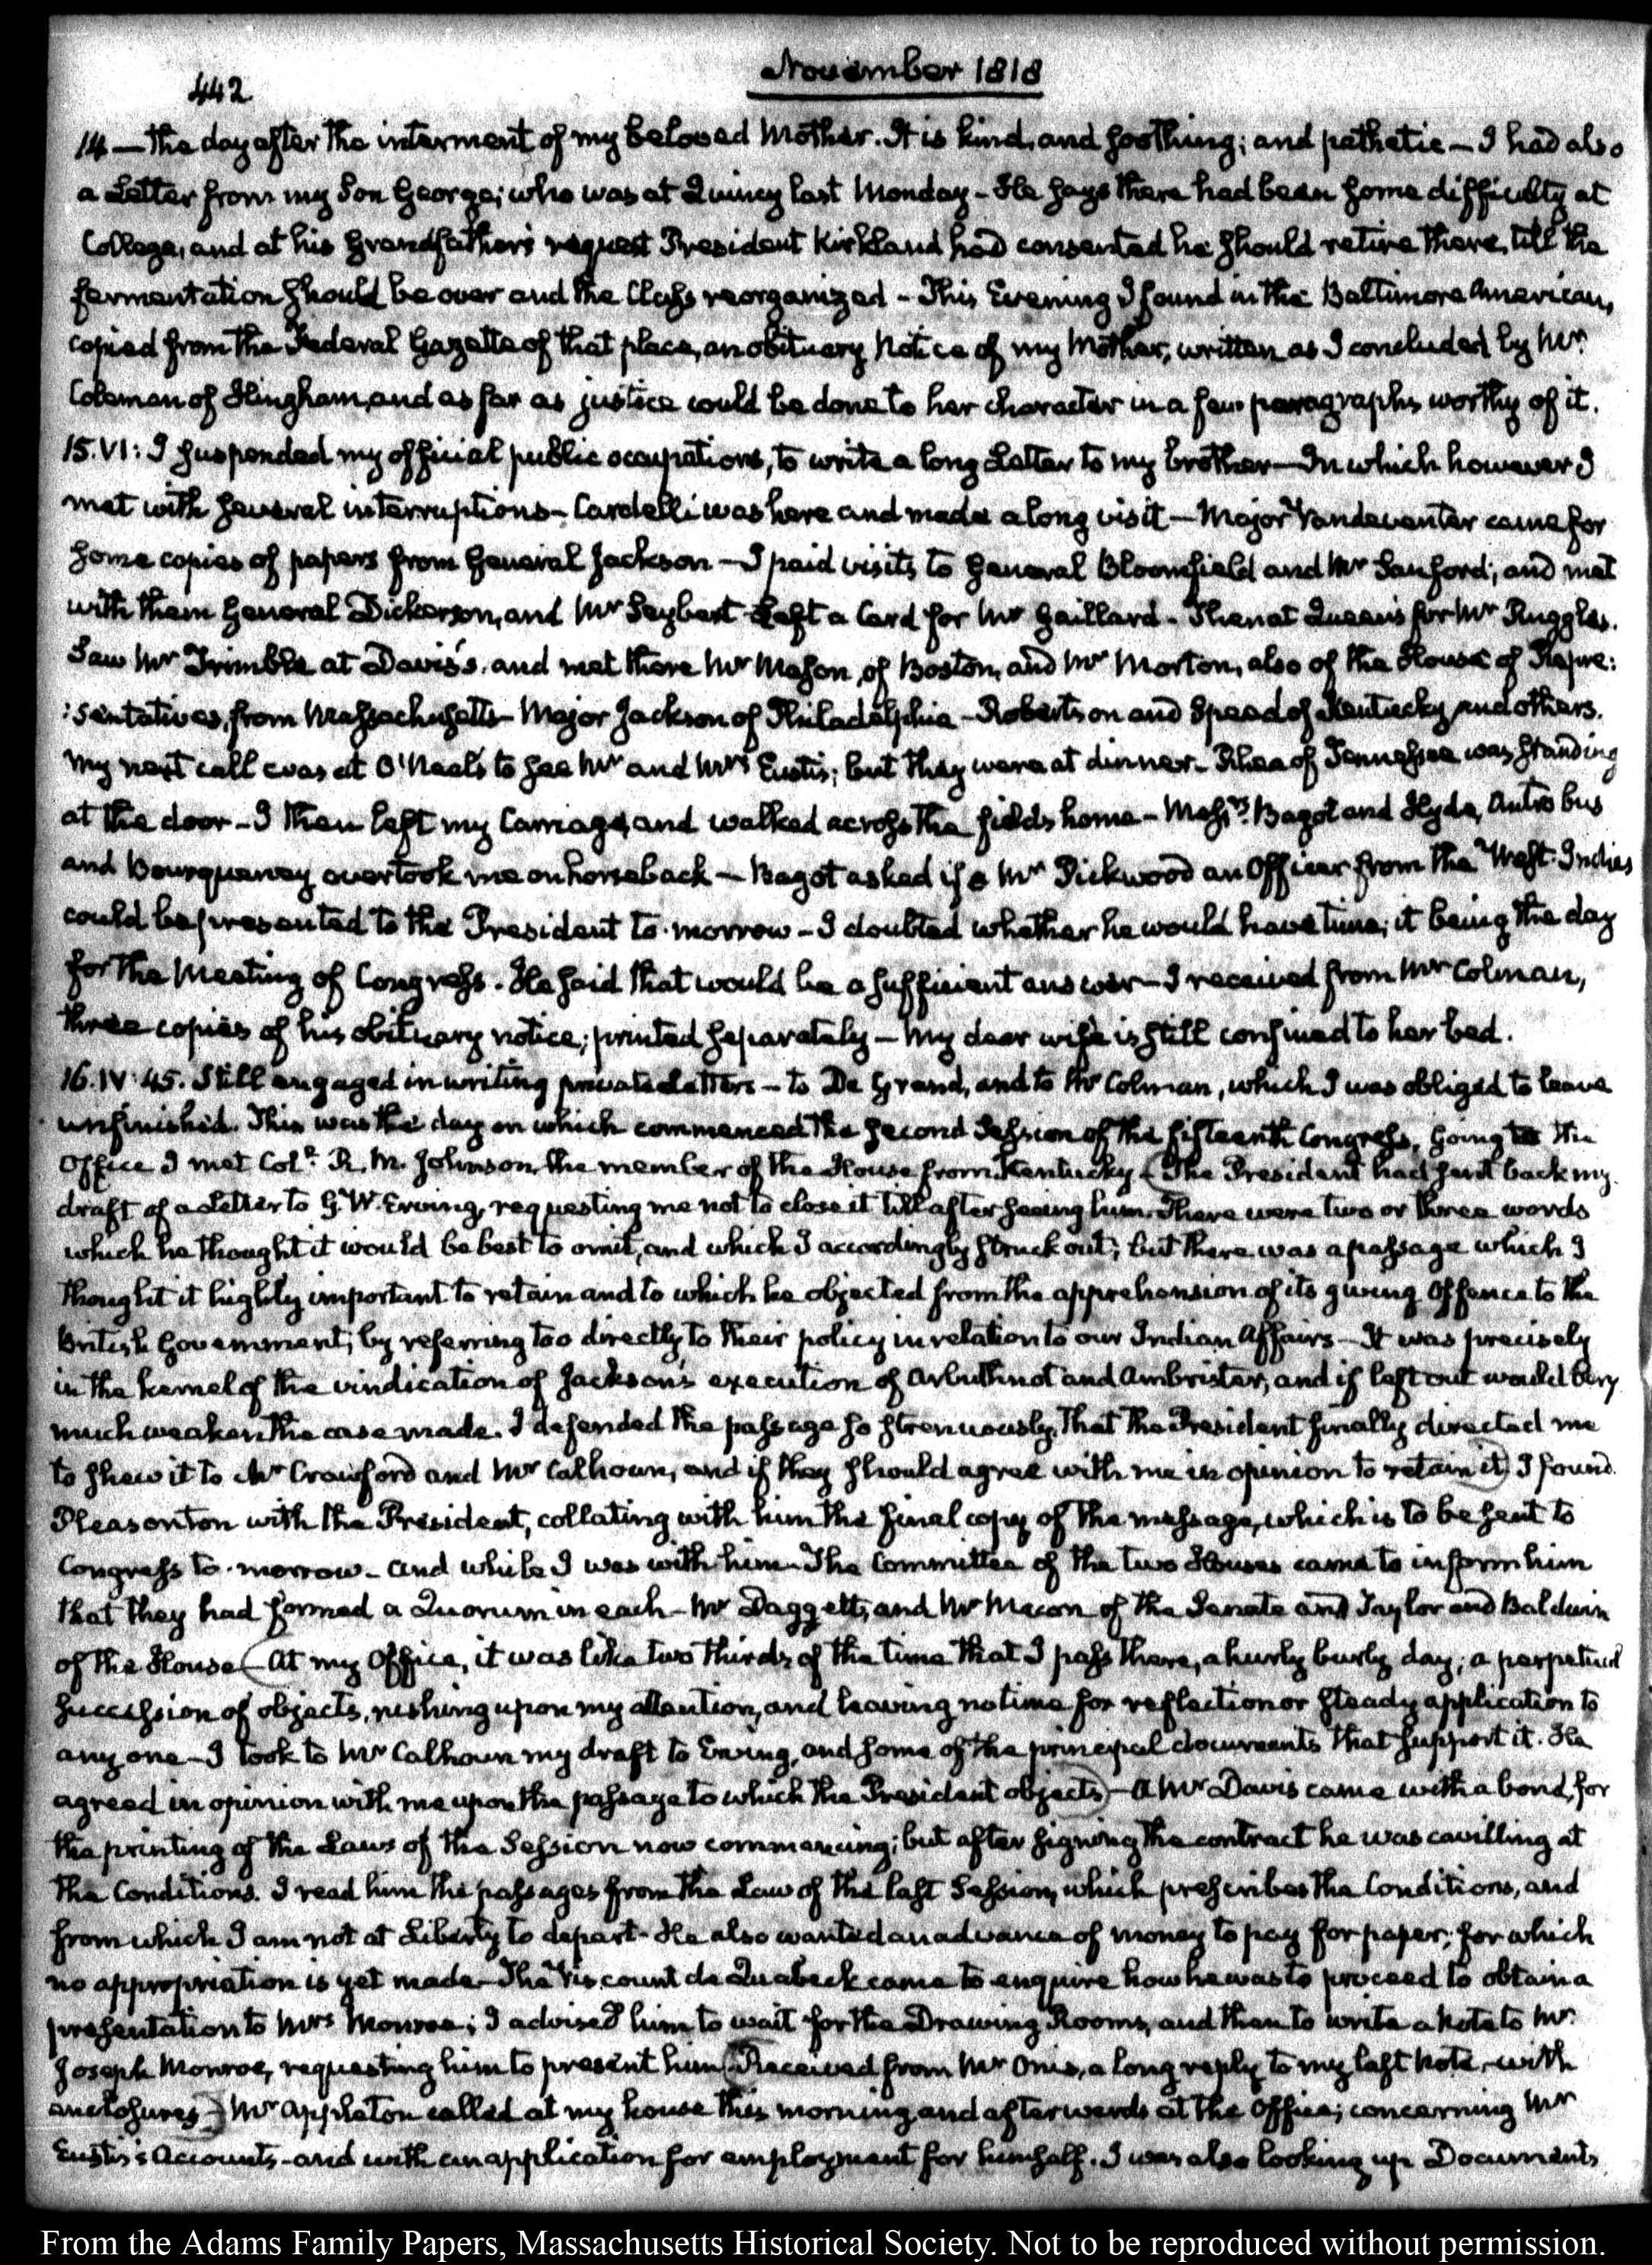 442
November 1818
14 — the day after the interment of my beloved Mother. It is kind, and soothing; and pathetic — I had also
a Letter from my Son George; who was at Quincy last Monday — He says there had been some difficulty at
College, and at his Grandfather's request President Kirkland had consented he should retire there, till the
fermentation should be over and the Class reorganized — This Evening I found in the Baltimore American,
copied from the Federal Gazette of that place, an obituary Notice of my Mother, written as I concluded by Mr.
Coleman of Hingham, and as far as justice could be done to her character in a few paragraphs worthy of it.
15. VI: I suspended my official public occupations, to write a long Letter to my brother — In which however I
met with several interruptions — Cardelli was here and made a long visit — Major Vandeventer came for
some copies of papers from General Jackson — I paid visits to General Bloomfield and Mr Sanford; and met
with them General Dickerson, and Mr Seybert — Left a Card for Mr Gaillard — Then at Queen's for Mr Ruggles.
Saw Mr Trimble at Davis's. and met there Mr Mason, of Boston, and Mr Morton, also of the House of Repre:
:sentatives, from Massachusetts — Major Jackson of Philadelphia — Robertson and Speed of Kentucky and others.
My next call was at O'Neal's to see Mr and Mrs Eustis; but they were at dinner — Rhea of Tennessee was standing
at the door — I then left my Carriage, and walked across the fields home — Messrs. Bagot and Hyde, Antrobus
and Bourqueney overtook me on horseback — Bagot asked if a Mr Pickwood an Officer from the West-Indies
could be presented to the President to-morrow — I doubted whether he would have time; it being the day
for the Meeting of Congress. He said that would be a sufficient answer — I received from Mr Colman,
three copies of his obituary notice; printed separately — My dear wife is still confined to her bed.
16. IV: 45. Still engaged in writing private Letters — to De Grand, and to Mr Colman, which I was obliged to leave
unfinished. This was the day on which commenced the second Session of the fifteenth Congress. Going to the
Office I met Col.l R. M. Johnson, the member of the House from Kentucky — (The President had sent back my
draft of a Letter to G. W. Erving, requesting me not to close it till after seeing him. There were two or three words
which he thought it would be best to omit, and which I accordingly struck out; but there was a passage which I
thought it highly important to retain and to which he objected from the apprehension of its giving Offence to the
British Government; by referring too directly to their policy in relation to our Indian Affairs — It was precisely
in the kernel of the vindication of Jackson's execution of Arbuthnot and Ambrister, and if left out would very
much weaken the case made. I defended the passage so strenuously, that the President finally directed me
to shew it to Mr Crawford and Mr Calhoun, and if they should agree with me in opinion to retain it) I found
Pleasonton with the President, collating with him the final copy of the message, which is to be sent to
Congress to-morrow — and while I was with him — The Committee of the two Houses came to inform him
that they had formed a Quorum in each — Mr Daggett, and Mr Macon of the Senate and Taylor and Baldwin
of the House (— At my Office, it was like two thirds of the time that I pass there, a hurly burly day; a perpetual
succession of objects, rushing upon my attention, and leaving no time for reflection or steady application to
any one — I took to Mr Calhoun my draft to Erving, and some of the principal documents that support it. He
agreed in opinion with me upon the passage to which the President objects) — A Mr Davis came with a bond, for
the printing of the Laws of the Session now commencing; but after signing the contract he was cavilling at
the Conditions. I read him the passages from the Law of the last Session, which prescribes the Conditions, and
from which I am not at Liberty to depart — He also wanted an advance of money to pay for paper; for which
no appropriation is yet made — The Viscount de Quabeck came to enquire how he was to proceed to obtain a
presentation to Mrs Monroe; I advised him to wait for the Drawing Rooms, and then to write a Note to Mr.
Joseph Monroe, requesting him to present him (Received from Mr Onis, a long reply to my last Note, with
enclosures) Mr Appleton called at my house this morning and afterwards at the Office; concerning Mr
Eustis's Accounts — and with an application for employment for himself. I was also looking up Documents
From the Adams Family Papers, Massachusetts Historical Society. Not to be reproduced without permission.